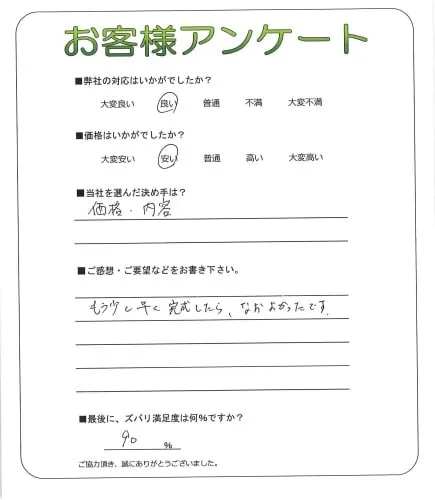 お客様アンケート
■弊社の対応はいかがでしたか？
大変良い 良い 普通 不満 大変不満
■価格はいかがでしたか？
大変安い 安い 普通 高い 大変高い
■当社を選んだ決め手は？
価格・内容
■ご感想・ご要望などをお書き下さい。
もう少し早く完成したら、なおよかったです。
■最後に、ズバリ満足度は何%ですか？
90 %
ご協力頂き、誠にありがとうございました。